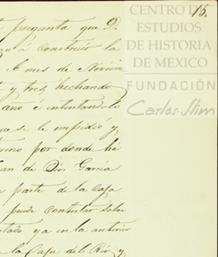 15.
CENTRO DE
ESTUDIOS
DE HISTORIA
DE MEXICO
FUNDACIÓN
Carlos Slim
pregunta que D.
construir la
mes de
y tres, hechando
ano é intentandole
se le impidió y
por donde ha
Juan de Dios Garcia
parte de la Casa
puede contestar sobre
ya en la anterior
la Casa del Rio, y